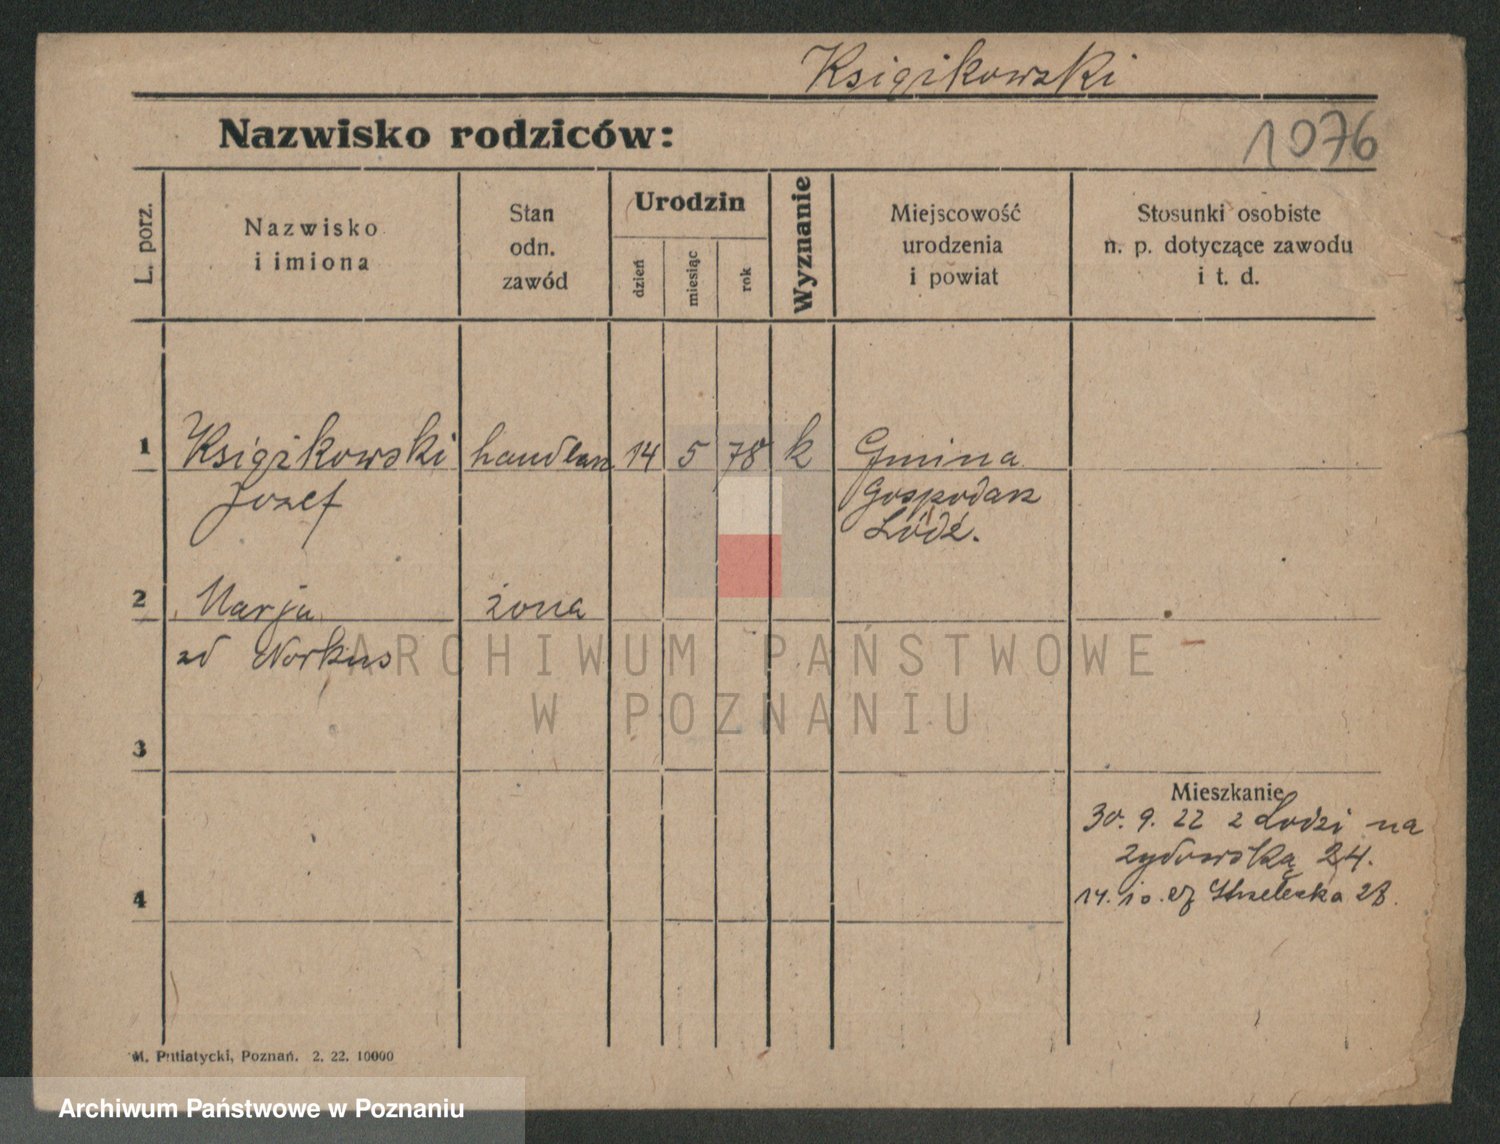 Książkowski
Nazwisko rodziców:
1076
L. porz.
Nazwisko
i imiona
Stan
odn.
zawód
Urodzin
dzień
miesiąc
rok
Wyznanie
Miejscowość
urodzenia
i powiat
Stosunki osobiste
n. p. dotyczące zawodu
i t. d.
1 Książkowski handlarz 14 5 78 k Gmina
Józef Gospodarz
Łódź.
2 Marja żona
zd Norkus
ARCHIWUM PAŃSTWOWE
W POZNANIU
3
Mieszkanie
30. 9. 22 z Łodzi na
Żydowską 24.
4 14. 10. Strzelecka 28.
M. Putiatycki, Poznań. 2. 22. 10000
Archiwum Państwowe w Poznaniu